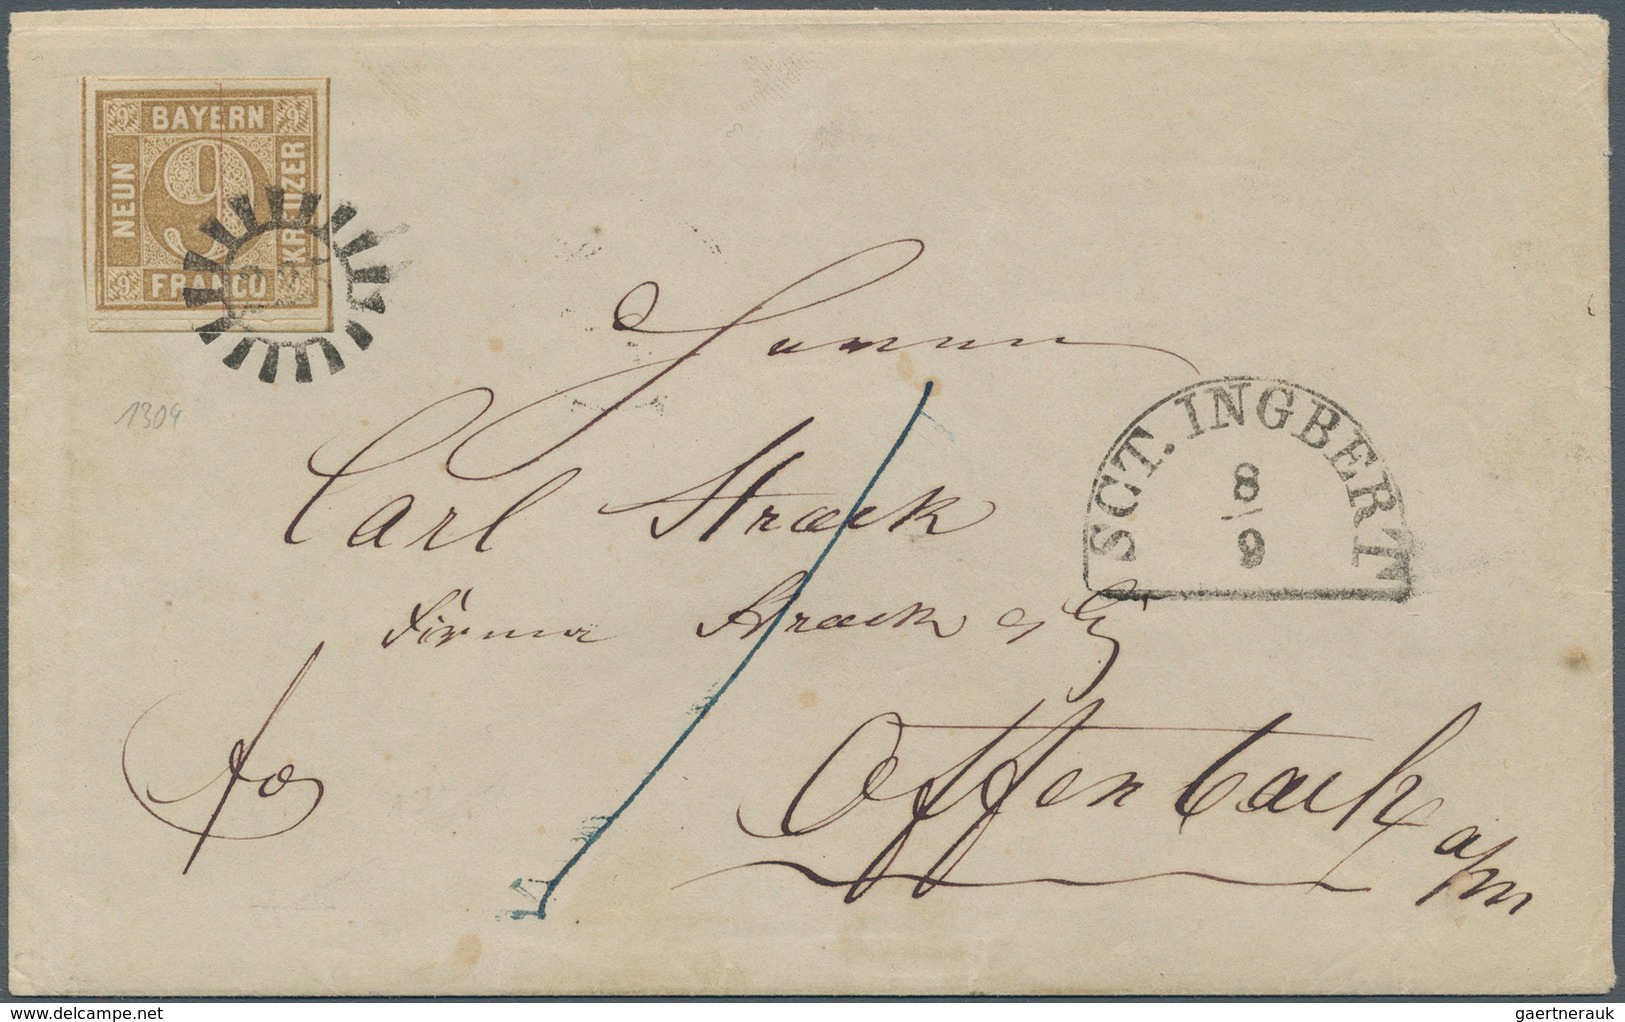 9 BAYERN 9
NEUN
KREUZER
9
9 FRANCO 9
1304
Herrn
Carl Strack
SCT. INGBERT
8/9
Firma Strack & Cie
fco
Offenbach
a/m
delcampe.net
gaertnerauk